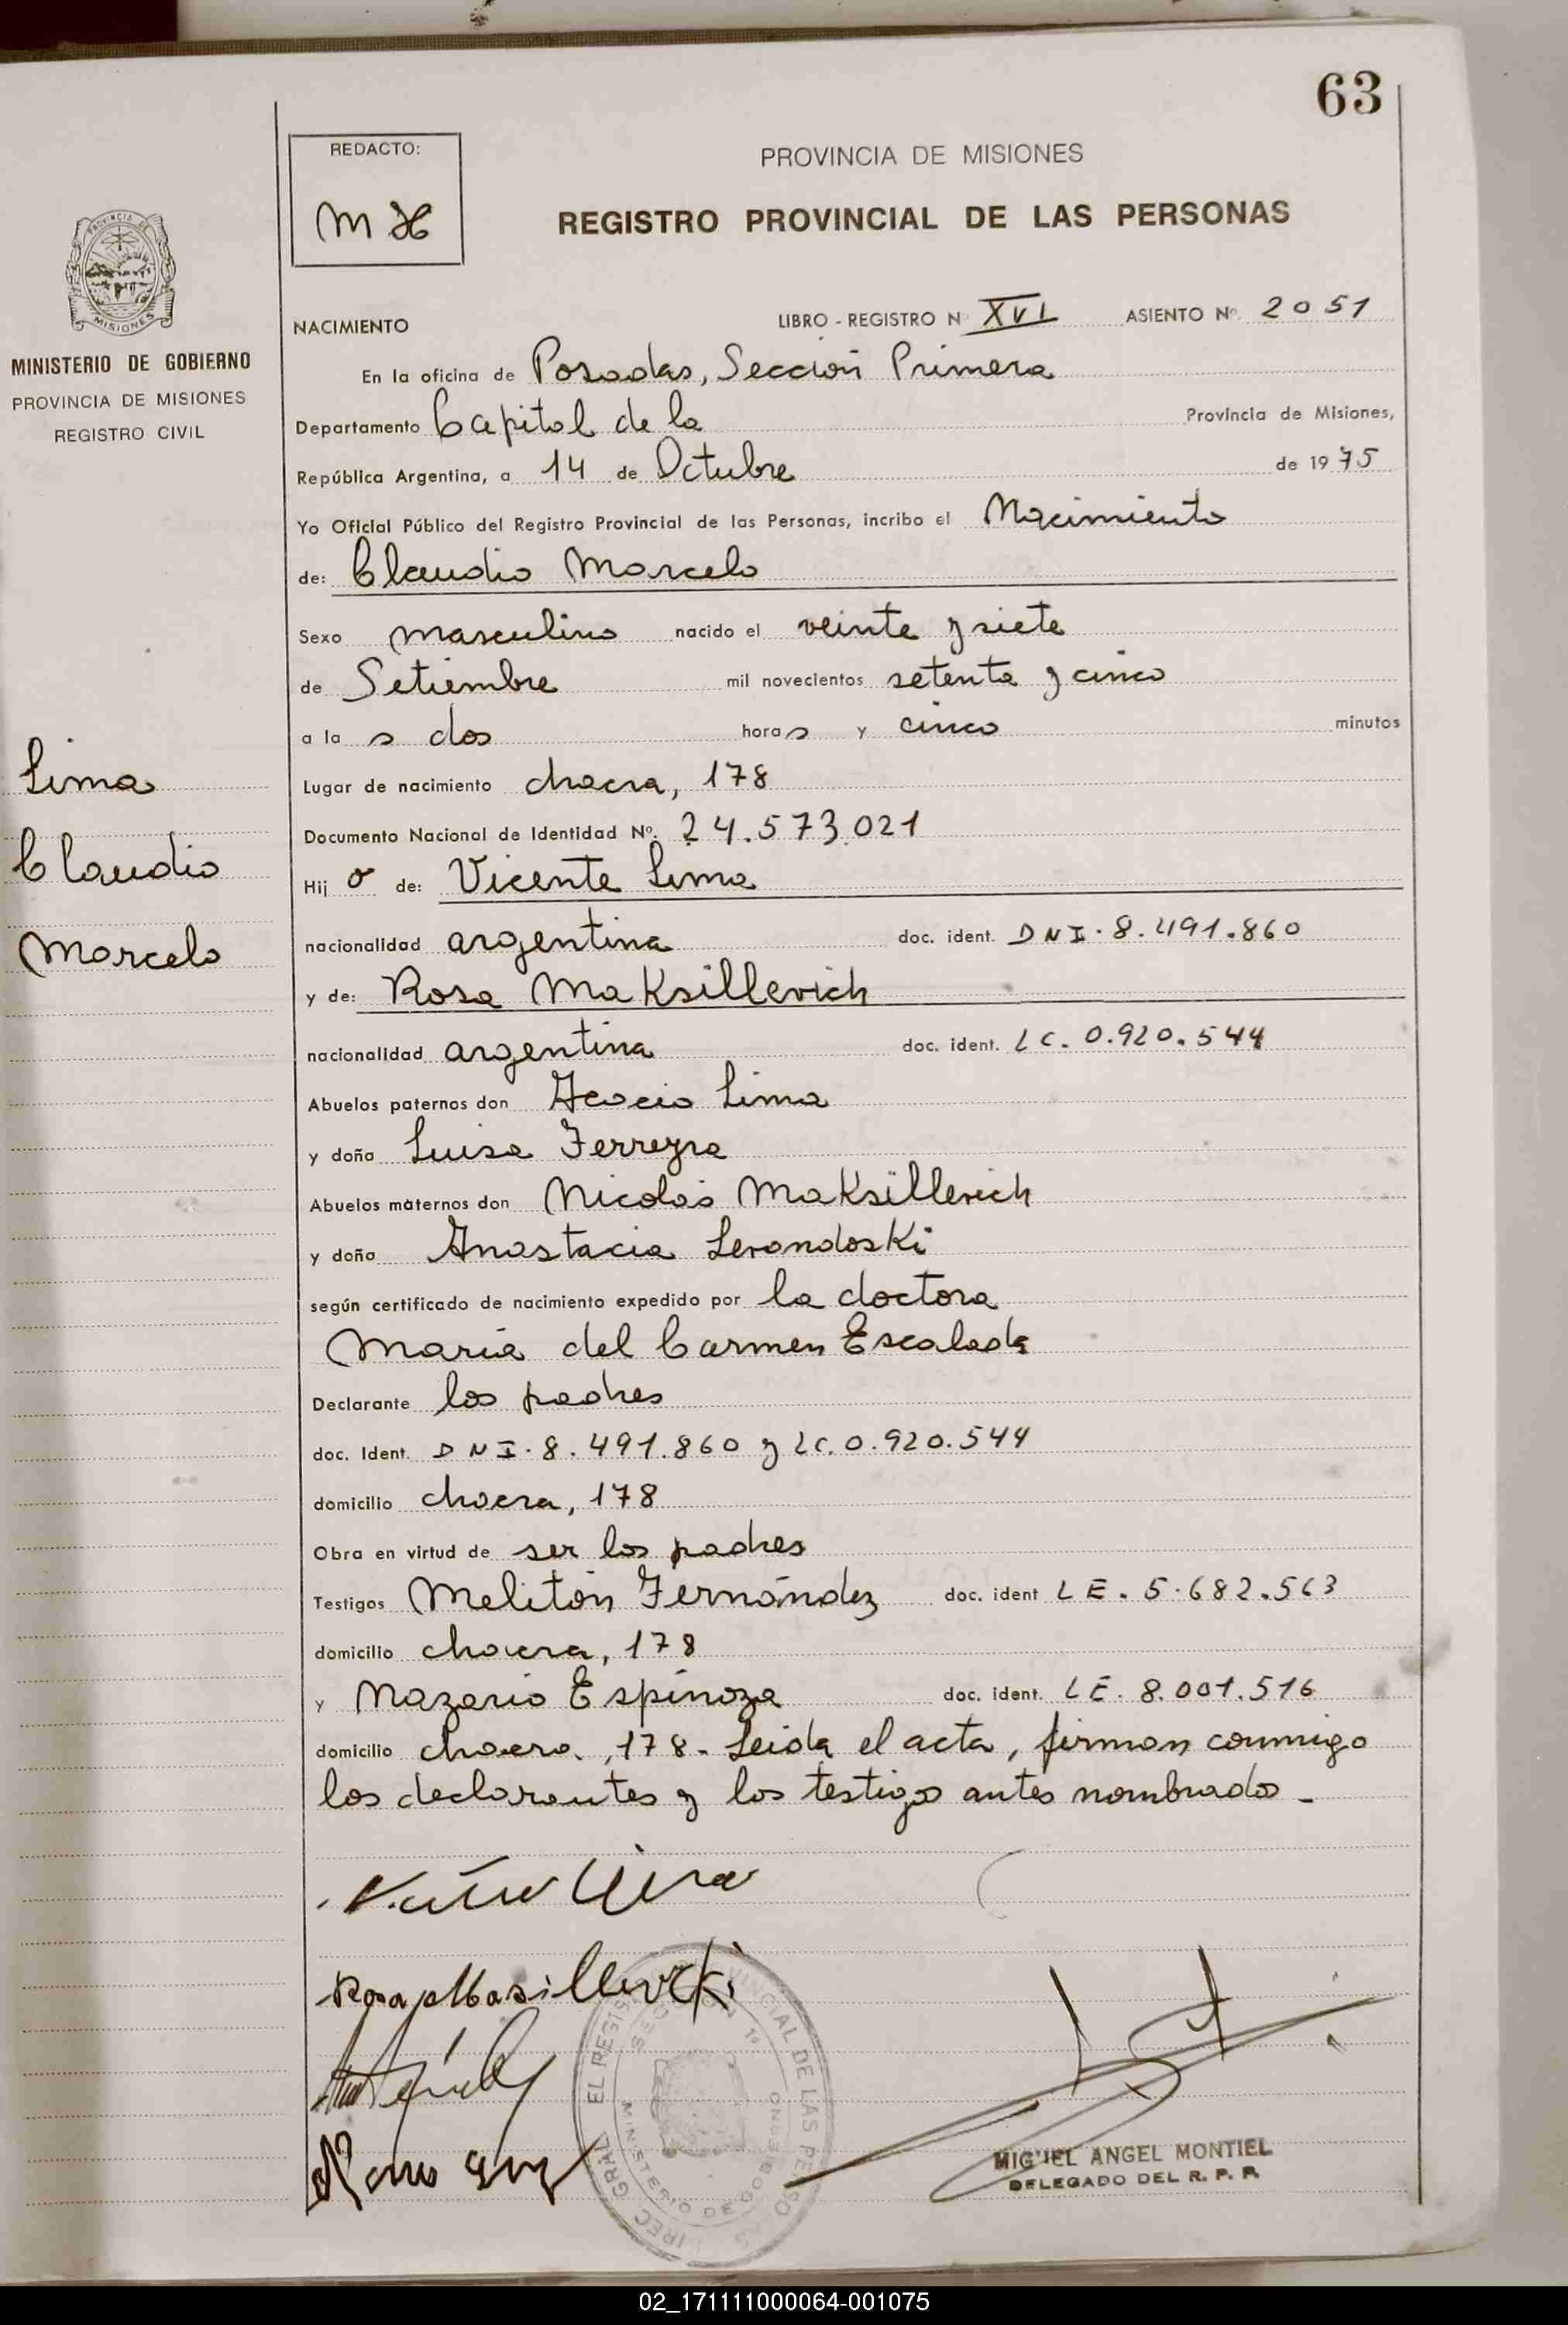 63
REDACTO:
PROVINCIA DE MISIONES
REGISTRO PROVINCIAL DE LAS PERSONAS
PROVINCIA DE
MISIONES
MINISTERIO DE GOBIERNO
PROVINCIA DE MISIONES
REGISTRO CIVIL
Lima
Claudio
Marcelo
NACIMIENTO LIBRO - REGISTRO Nº XVI ASIENTO Nº 2051
En la oficina de Posadas, Sección Primera
Departamento Capital de la Provincia de Misiones,
República Argentina, a 14 de Octubre de 1975
Yo Oficial Público del Registro Provincial de las Personas, incribo el Nacimiento
de: Claudio Marcelo
Sexo masculino nacido el veinte y siete
de Setiembre mil novecientos setenta y cinco
a la s dos horas y cinco minutos
Lugar de nacimiento chacra, 178
Documento Nacional de Identidad Nº. 24.573.021
Hij o de: Vicente Lima
nacionalidad argentina doc. ident. DNI. 8.491.860
y de: Rosa Maksillevich
nacionalidad argentina doc. ident. LC. 0.920.544
Abuelos paternos don Acacio Lima
y doña Luisa Ferreyra
Abuelos maternos don Nicolás Maksillevich
y doña Anastacia Levandoski
según certificado de nacimiento expedido por la doctora
María del Carmen Escalada
Declarante los padres
doc. Ident. DNI. 8.491.860 y LC. 0.920.544
domicilio chacra, 178
Obra en virtud de ser los padres
Testigos Melitón Fernández doc. ident LE. 5.682.563
domicilio chacra, 178
y Nazario Espinoza doc. ident. LE. 8.001.516
domicilio chacra, 178. Leida el acta, firman conmigo
los declarantes y los testigos antes nombrados.
MIGUEL ANGEL MONTIEL
DELEGADO DEL R. P. P.
02_171111000064-001075